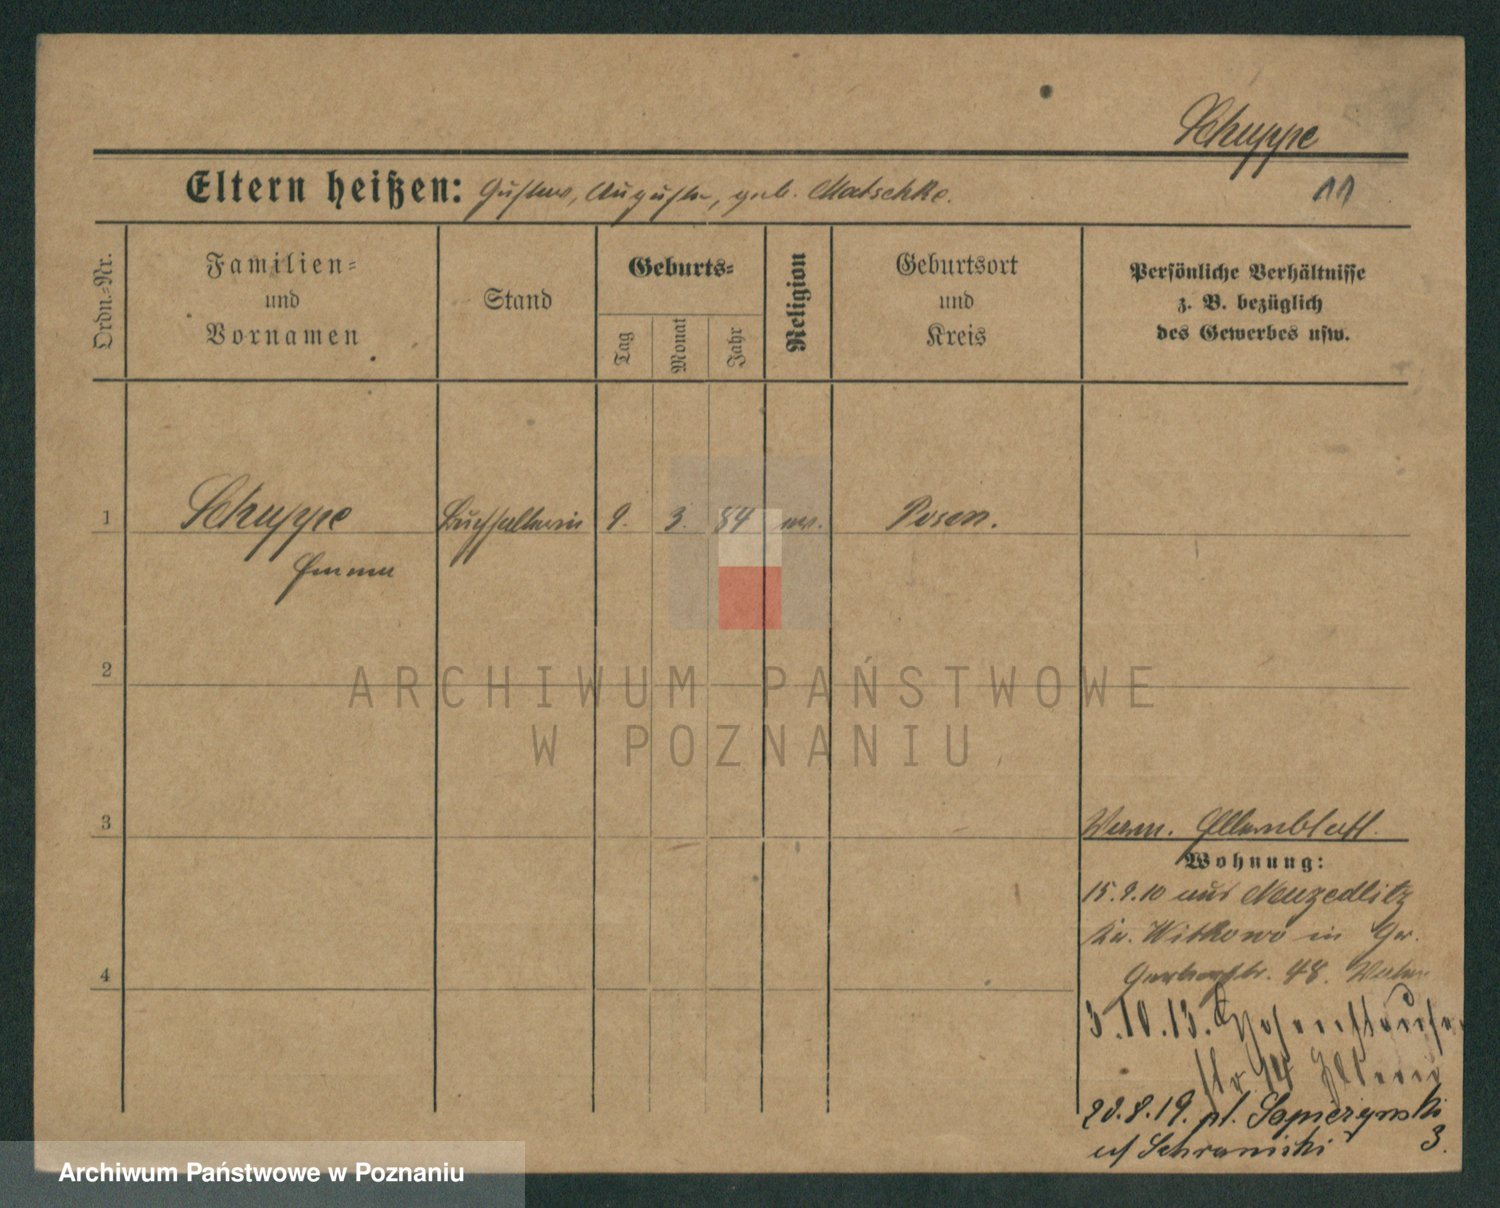 Schuppe
Eltern heißen: Gustav, Auguste, geb. Matschke.
11
Ordn.-Nr.
Familien-
und
Vornamen
Stand
Geburts-
Tag
Monat
Jahr
Religion
Geburtsort
und
Kreis
Persönliche Verhältnisse
z. B. bezüglich
des Gewerbes usw.
1 Schuppe Buchhalterin 9. 3. 84 ev. Posen.
Emma
2
ARCHIWUM PAŃSTWOWE
W POZNANIU
3
Verm. Elternblatt.
Wohnung:
15.9.10 aus Neuzedlitz
Kr. Witkowo in Gr.
Gerberstr. 48.
4
3.10.13. Hohenstaufen
str 14 Eltern
28.8.19. pl. Sapieżynski
3.
Archiwum Państwowe w Poznaniu